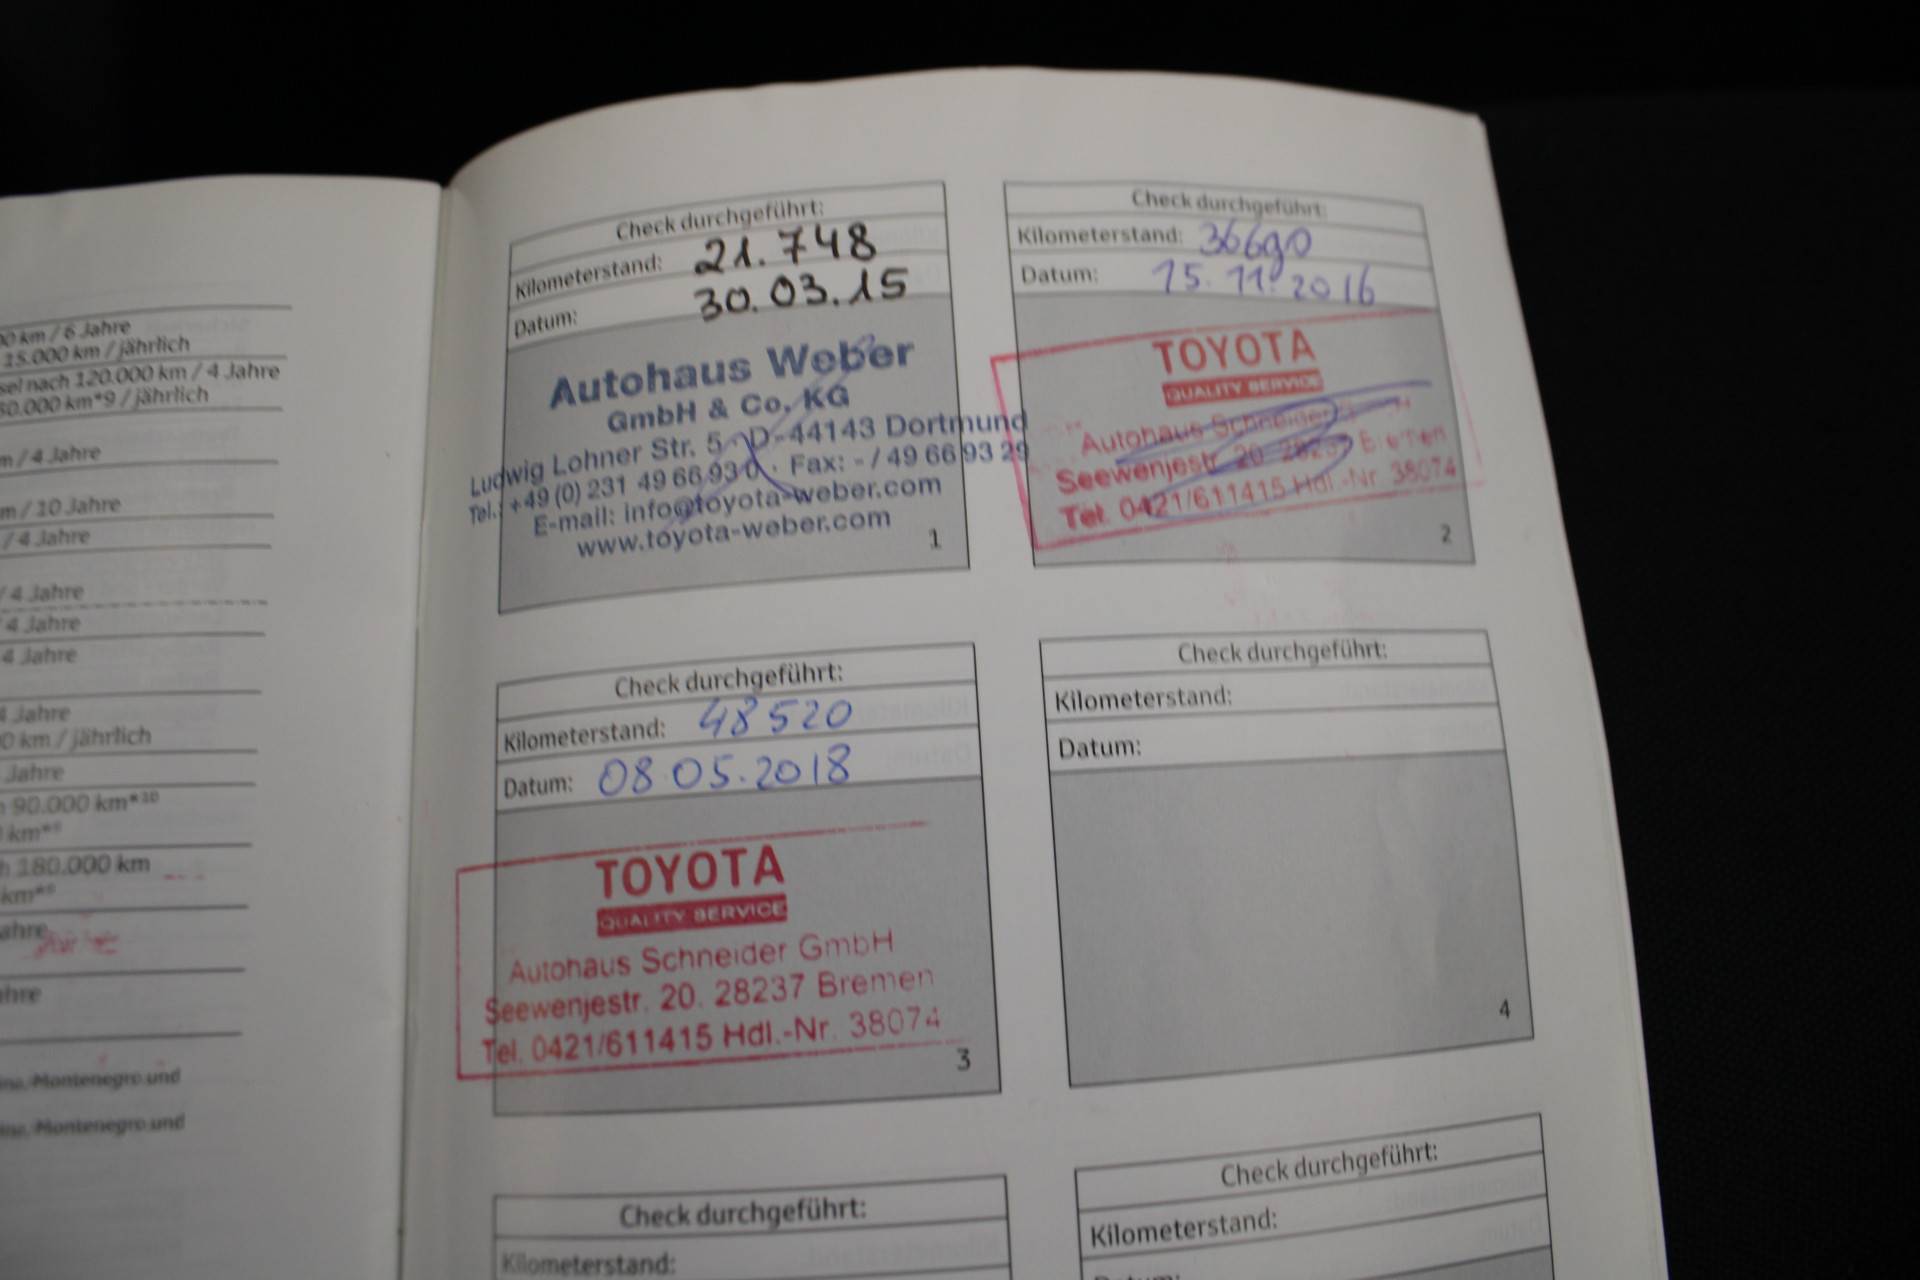 00 km / 6 Jahre
15.000 km / jährlich
sel nach 120.000 km / 4 Jahre
60.000 km*9 / jährlich
m / 4 Jahre
m / 10 Jahre
/ 4 Jahre
/ 4 Jahre
4 Jahre
4 Jahre
4 Jahre
0 km / jährlich
Jahre
90.000 km*10
km*9
h 180.000 km
km*9
ahre
ahre
ina, Montenegro und
ina, Montenegro und
Check durchgeführt:
Kilometerstand: 21.748
Datum: 30.03.15
Autohaus Weber
GmbH & Co. KG
Ludwig Lohner Str. 5 D-44143 Dortmund
Tel.: +49 (0) 231 49 66 93 0 · Fax: - / 49 66 93 29
E-mail: info@toyota-weber.com
www.toyota-weber.com
1
Check durchgeführt:
Kilometerstand: 36690
Datum: 15.11.2016
TOYOTA
QUALITY SERVICE
Autohaus Schneider
Seewenjestr. 20 28237 Bremen
Tel. 0421/611415 Hdl.-Nr. 38074
2
Check durchgeführt:
Kilometerstand: 48520
Datum: 08 05.2018
TOYOTA
QUALITY SERVICE
Autohaus Schneider GmbH
Seewenjestr. 20. 28237 Bremen
Tel. 0421/611415 Hdl.-Nr. 38074
3
Check durchgeführt:
Kilometerstand:
Datum:
4
Check durchgeführt:
Kilometerstand:
Check durchgeführt:
Kilometerstand:
Datum: